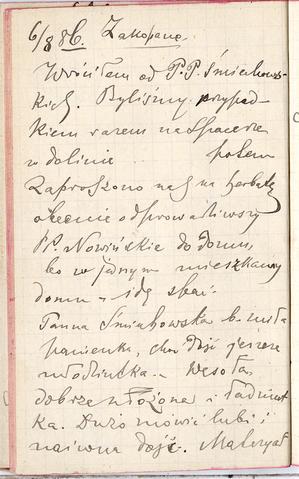 6/8 86. Zakopane.
Wróciłem od P.P. Śmiechows-
kich. Byliśmy przypad-
kiem razem na spacerze
w dolinie potem
zaproszono nas na herbatę
obecnie odprowadziwszy
PP. Nowińskie do domu,
bo w jednym mieszkamy
domu - idę spać.
Panna Śmiechowska b. miła
panienka, choć dość jeszcze
młodziutka.. Wesoła,
dobrze ułożona i ładniut
ka. Dużo mówić lubi i
naiwna dość. Materyał